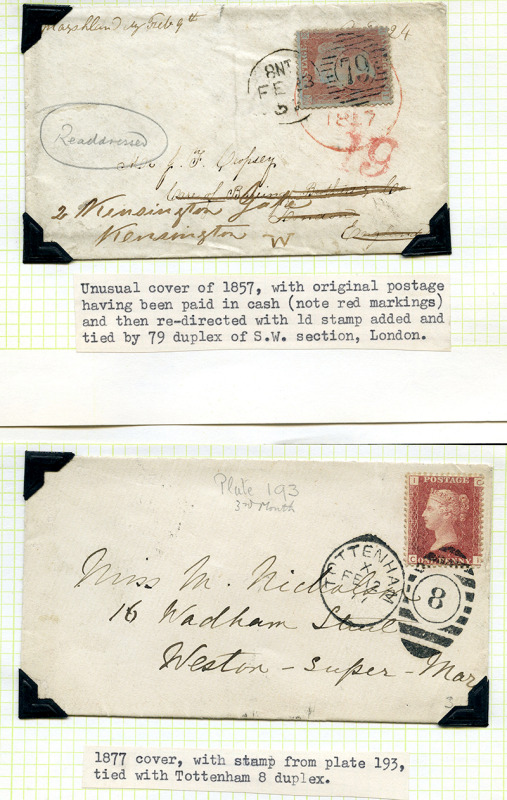 Feb 9th
24
8NT
FE
79
1857
Readdressed
J. F.
2 Kensington Gate
Kensington W
Unusual cover of 1857, with original postage
having been paid in cash (note red markings)
and then re-directed with 1d stamp added and
tied by 79 duplex of S.W. section, London.
Plate 193
3rd Month
POSTAGE
ONE PENNY
TOTTENHAM
X
FE 2
8
Miss M.
16 Wadham
Weston-super-Mar
1877 cover, with stamp from plate 193,
tied with Tottenham 8 duplex.